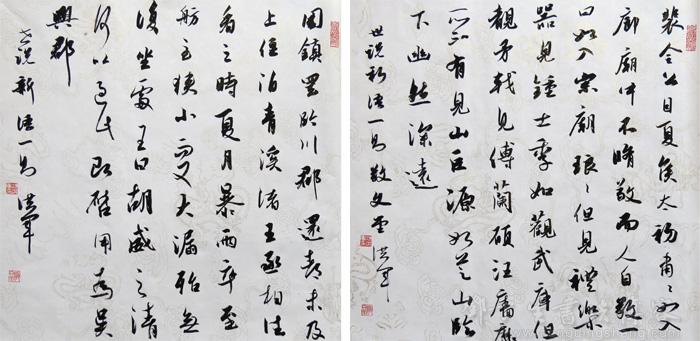 裴令公目夏侯太初肅〻如入
廊廟中不脩敬而人自敬一
曰如入宗廟琅〻但見禮樂
器見鍾士季如觀武庫但
覩矛戟見傅蘭碩汪廧靡
所不有見山巨源如登山臨
下幽然深遠
世說新語一則 洪軍
周鎮罷臨川郡還都未及
上住泊青溪渚王丞相往
看之時夏月暴雨卒至
舫至狹小而又大漏殆無
復坐處王曰胡威之清
何以過此即啓用為吳
興郡
世說新語一則 洪軍